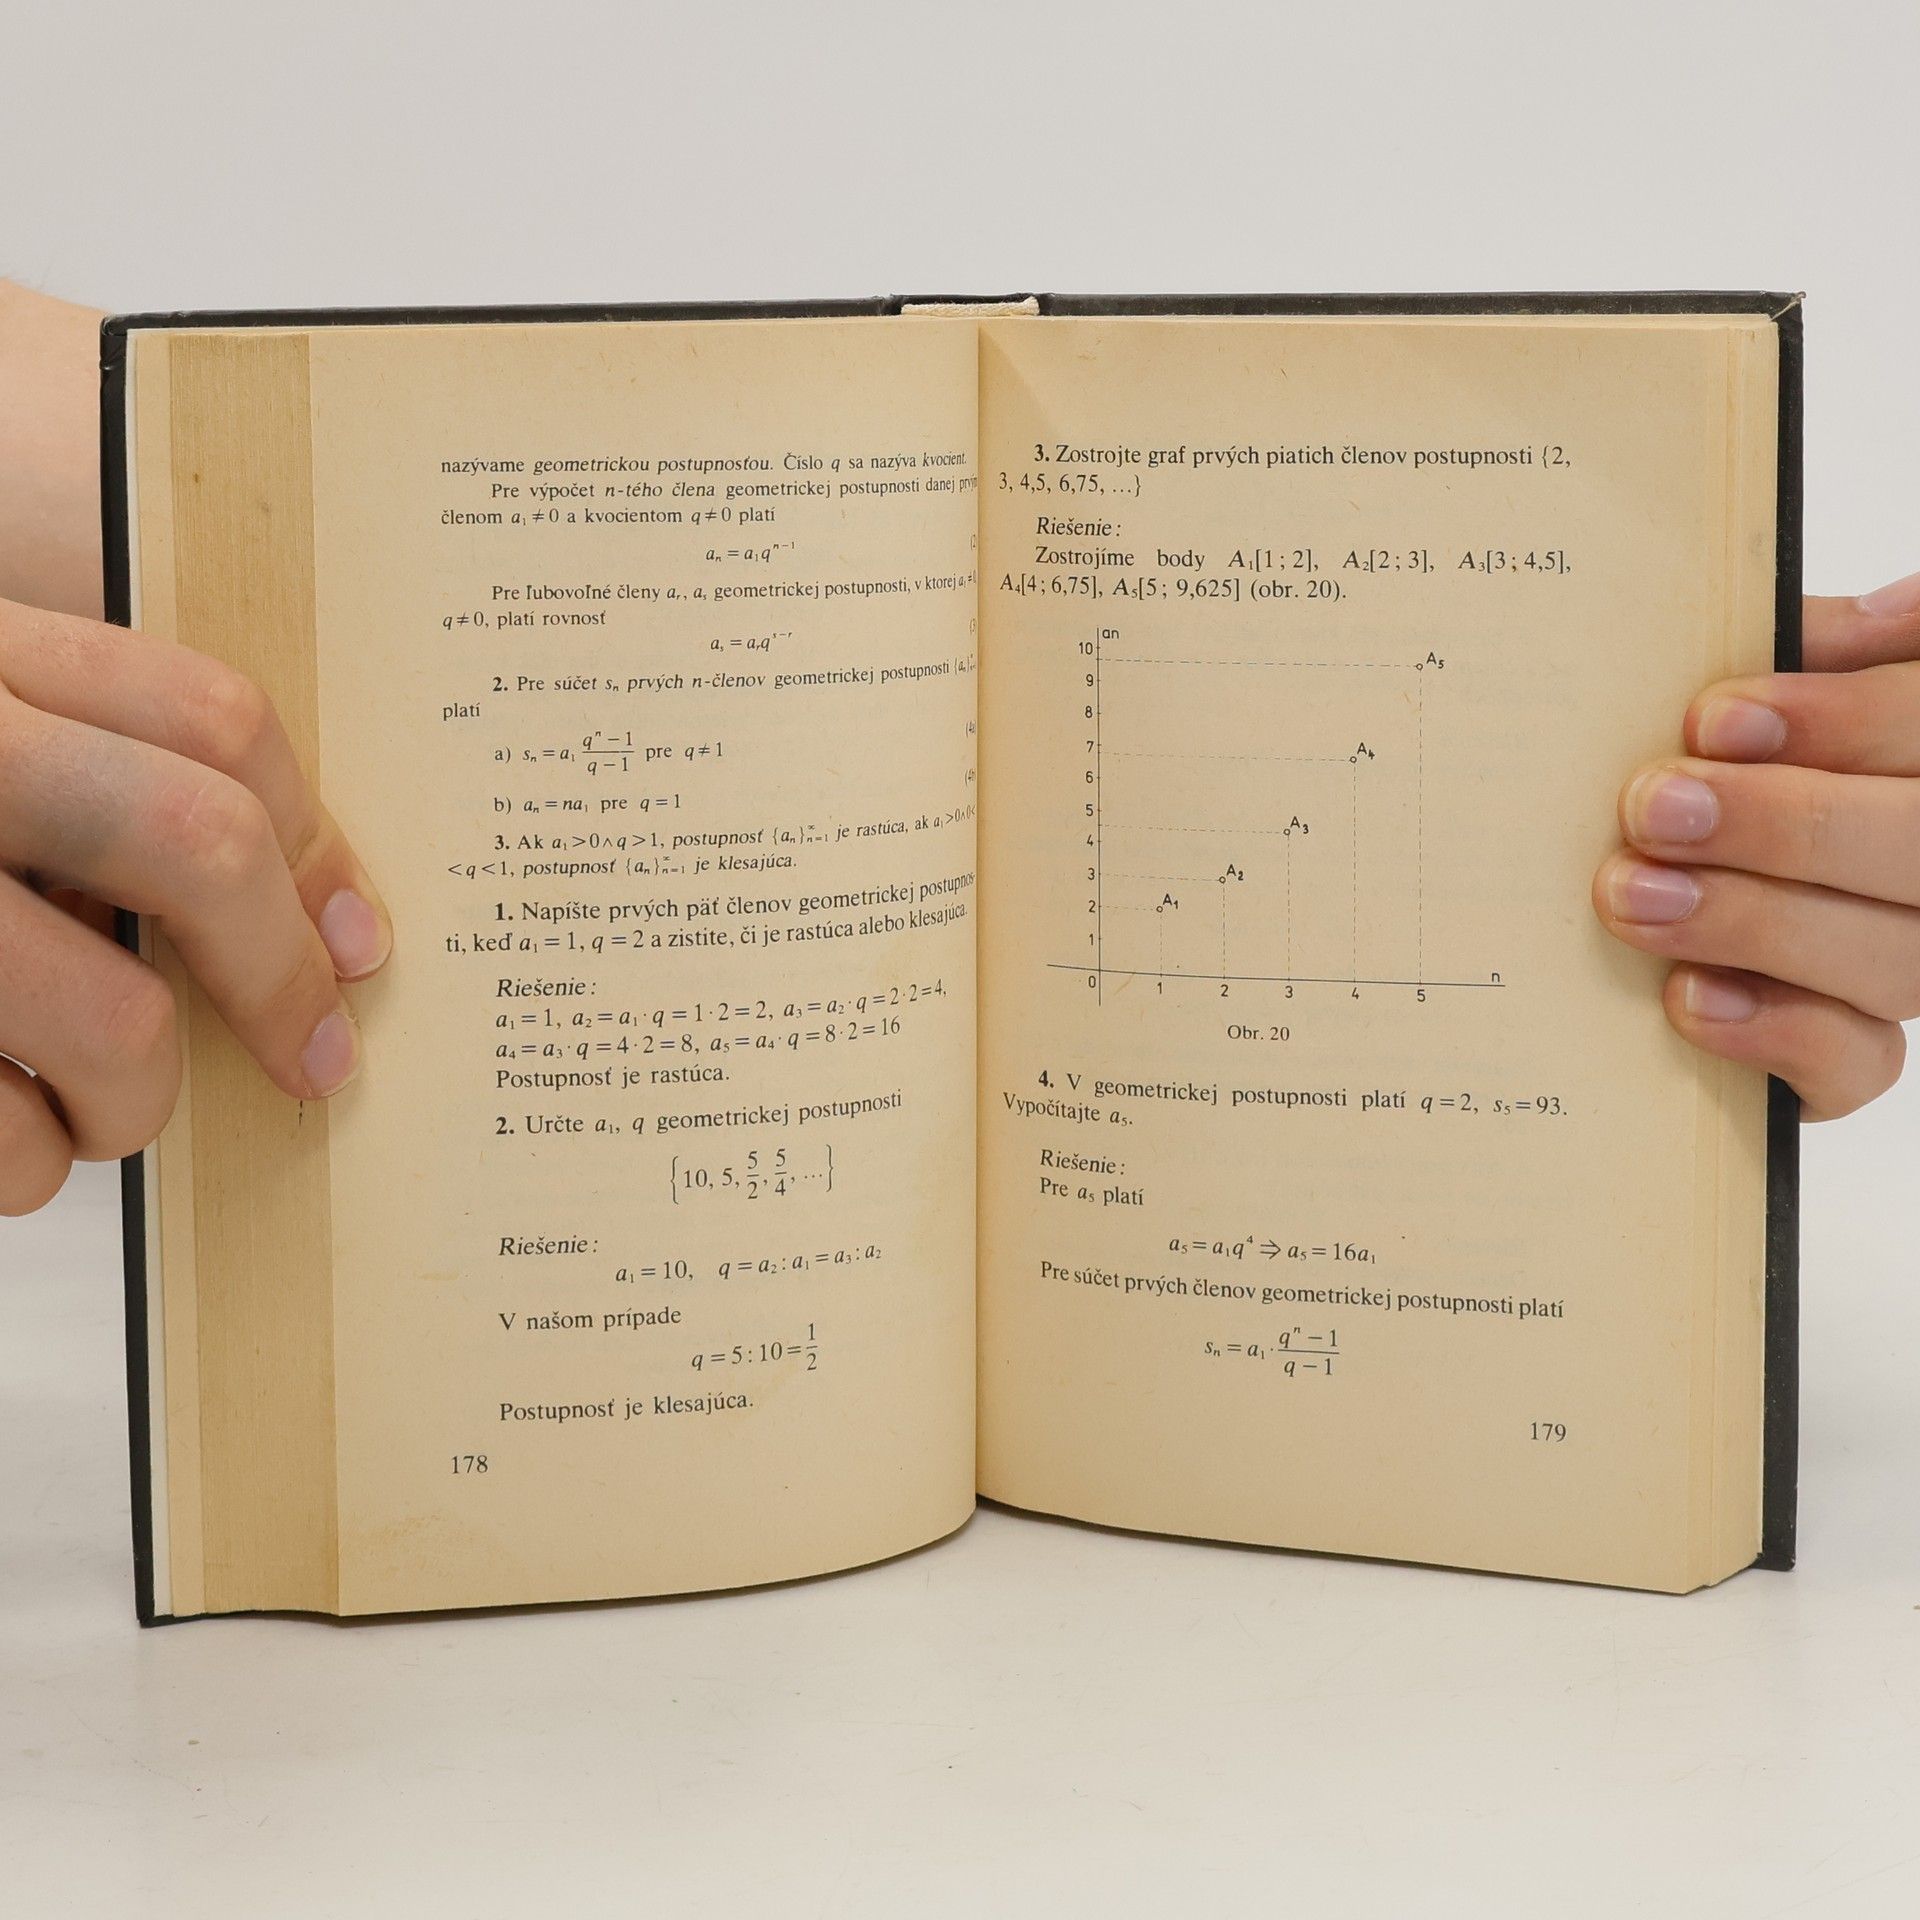 nazývame geometrickou postupnosťou. Číslo q sa nazýva kvocient.
Pre výpočet n-tého člena geometrickej postupnosti danej
členom a₁ ≠ 0 a kvocientom q ≠ 0 platí
aₙ = a₁qⁿ⁻¹
Pre ľubovoľné členy aᵣ, aₛ geometrickej postupnosti, v ktorej a₁ ≠
q ≠ 0, platí rovnosť
aₛ = aᵣqˢ⁻ʳ
2. Pre súčet sₙ prvých n-členov geometrickej postupnosti
platí
a) sₙ = a₁ (qⁿ − 1)/(q − 1) pre q ≠ 1
b) aₙ = na₁ pre q = 1
3. Ak a₁ > 0 ∧ q > 1, postupnosť {aₙ}ₙ₌₁^∞ je rastúca, ak a₁ > 0 ∧ 0 <
< q < 1, postupnosť {aₙ}ₙ₌₁^∞ je klesajúca.
1. Napíšte prvých päť členov geometrickej postupnos-
ti, keď a₁ = 1, q = 2 a zistite, či je rastúca alebo klesajúca.
Riešenie:
a₁ = 1, a₂ = a₁ · q = 1 · 2 = 2, a₃ = a₂ · q = 2 · 2 = 4,
a₄ = a₃ · q = 4 · 2 = 8, a₅ = a₄ · q = 8 · 2 = 16
Postupnosť je rastúca.
2. Určte a₁, q geometrickej postupnosti
{10, 5, 5/2, 5/4, ...}
Riešenie:
a₁ = 10, q = a₂ : a₁ = a₃ : a₂
V našom prípade
q = 5 : 10 = 1/2
Postupnosť je klesajúca.
178
3. Zostrojte graf prvých piatich členov postupnosti {2,
3, 4,5, 6,75, ...}
Riešenie:
Zostrojíme body A₁[1 ; 2], A₂[2 ; 3], A₃[3 ; 4,5],
A₄[4 ; 6,75], A₅[5 ; 9,625] (obr. 20).
an
10
A₅
9
8
7
A₄
6
5
A₃
4
3
A₂
2
A₁
1
n
0 1 2 3 4 5
Obr. 20
4. V geometrickej postupnosti platí q = 2, s₅ = 93.
Vypočítajte a₅.
Riešenie:
Pre a₅ platí
a₅ = a₁q⁴ ⇒ a₅ = 16a₁
Pre súčet prvých členov geometrickej postupnosti platí
sₙ = a₁ · (qⁿ − 1)/(q − 1)
179